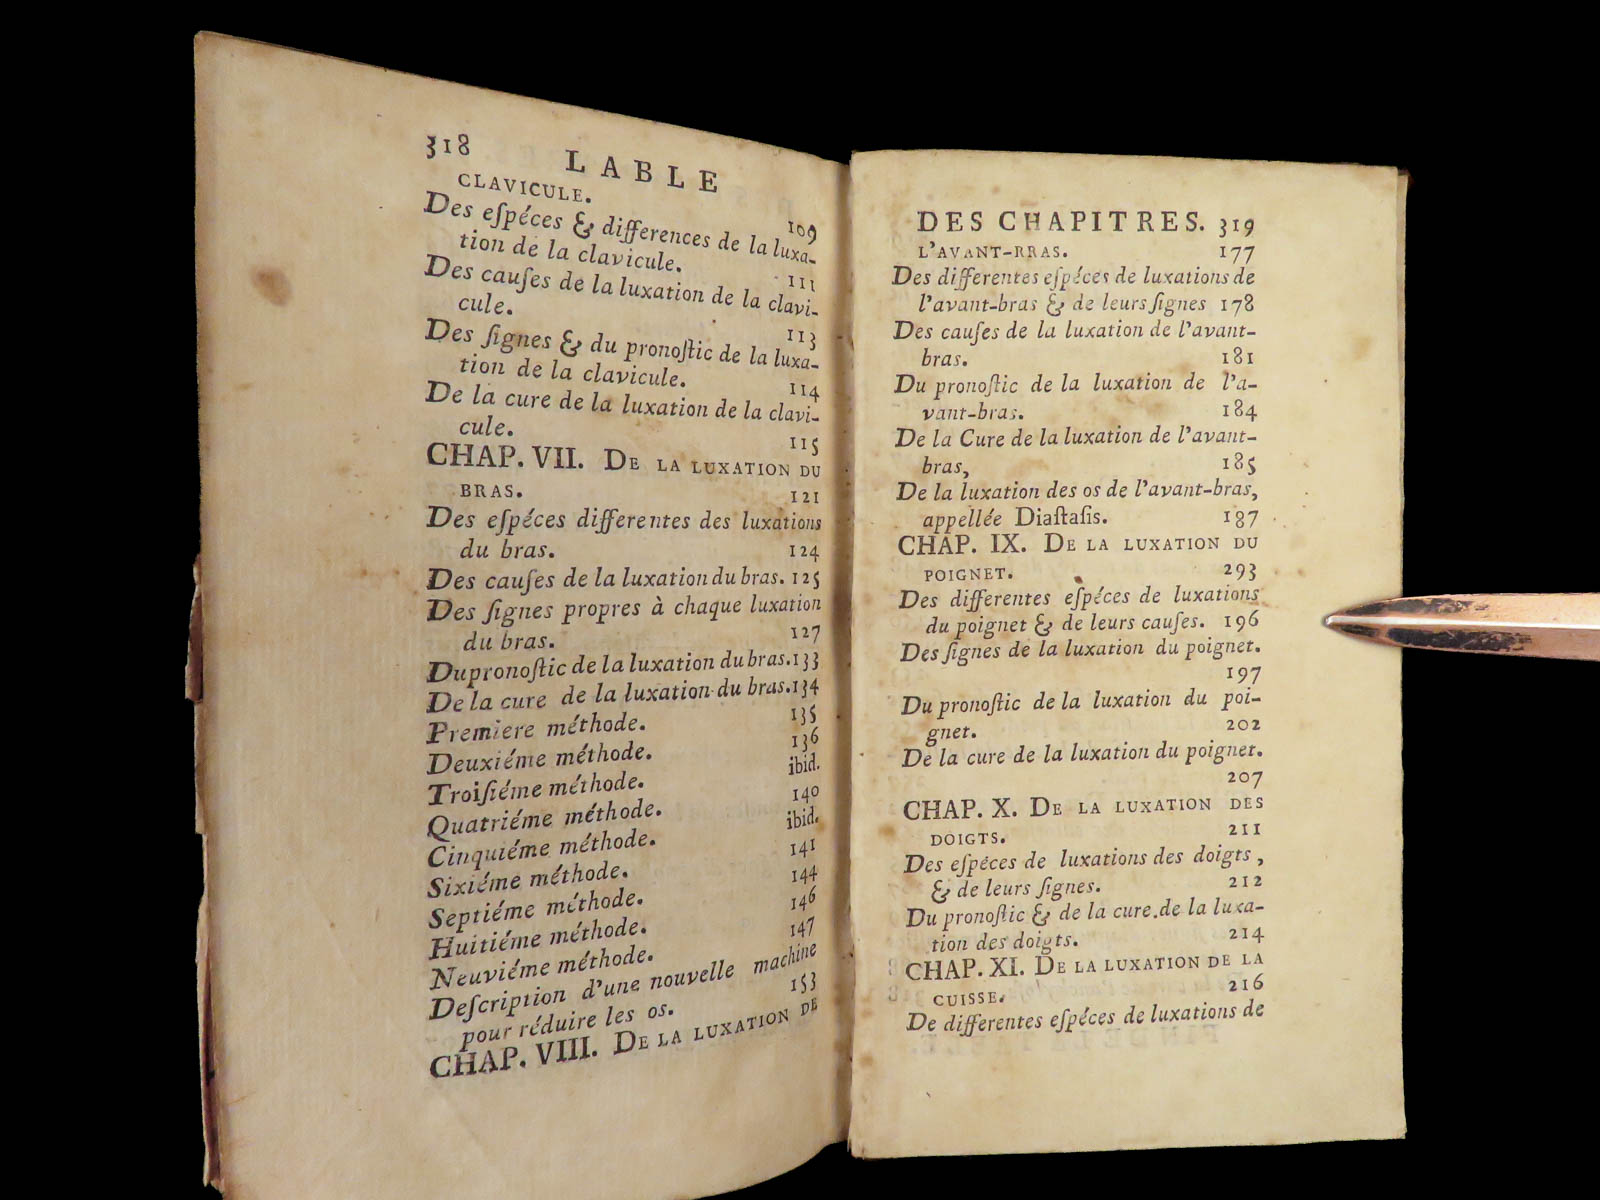 318 LABLE
CLAVICULE. 109
Des eſpéces & differences de la luxa-
tion de la clavicule. 111
Des cauſes de la luxation de la clavi-
cule. 113
Des ſignes & du pronoſtic de la luxa-
tion de la clavicule. 114
De la cure de la luxation de la clavi-
cule. 115
CHAP. VII. DE LA LUXATION DU
BRAS. 121
Des eſpéces differentes des luxations
du bras. 124
Des cauſes de la luxation du bras. 125
Des ſignes propres à chaque luxation
du bras. 127
Du pronoſtic de la luxation du bras. 133
De la cure de la luxation du bras. 134
Premiere méthode. 135
Deuxiéme méthode. 136
Troiſiéme méthode. ibid.
Quatriéme méthode. 140
Cinquiéme méthode. ibid.
Sixiéme méthode. 141
Septiéme méthode. 144
Huitiéme méthode. 146
Neuviéme méthode. 147
Deſcription d'une nouvelle machine
pour réduire les os. 153
CHAP. VIII. DE LA LUXATION DE
DES CHAPITRES. 319
L'AVANT-RRAS. 177
Des differentes eſpéces de luxations de
l'avant-bras & de leurs ſignes 178
Des cauſes de la luxation de l'avant-
bras. 181
Du pronoſtic de la luxation de l'a-
vant-bras. 184
De la Cure de la luxation de l'avant-
bras, 185
De la luxation des os de l'avant-bras,
appellée Diaſtaſis. 187
CHAP. IX. DE LA LUXATION DU
POIGNET. 293
Des differentes eſpéces de luxations
du poignet & de leurs cauſes. 196
Des ſignes de la luxation du poignet.
197
Du pronoſtic de la luxation du poi-
gnet. 202
De la cure de la luxation du poignet.
207
CHAP. X. DE LA LUXATION DES
DOIGTS. 211
Des eſpéces de luxations des doigts,
& de leurs ſignes. 212
Du pronoſtic & de la cure de la luxa-
tion des doigts. 214
CHAP. XI. DE LA LUXATION DE LA
CUISSE. 216
De differentes eſpéces de luxations de